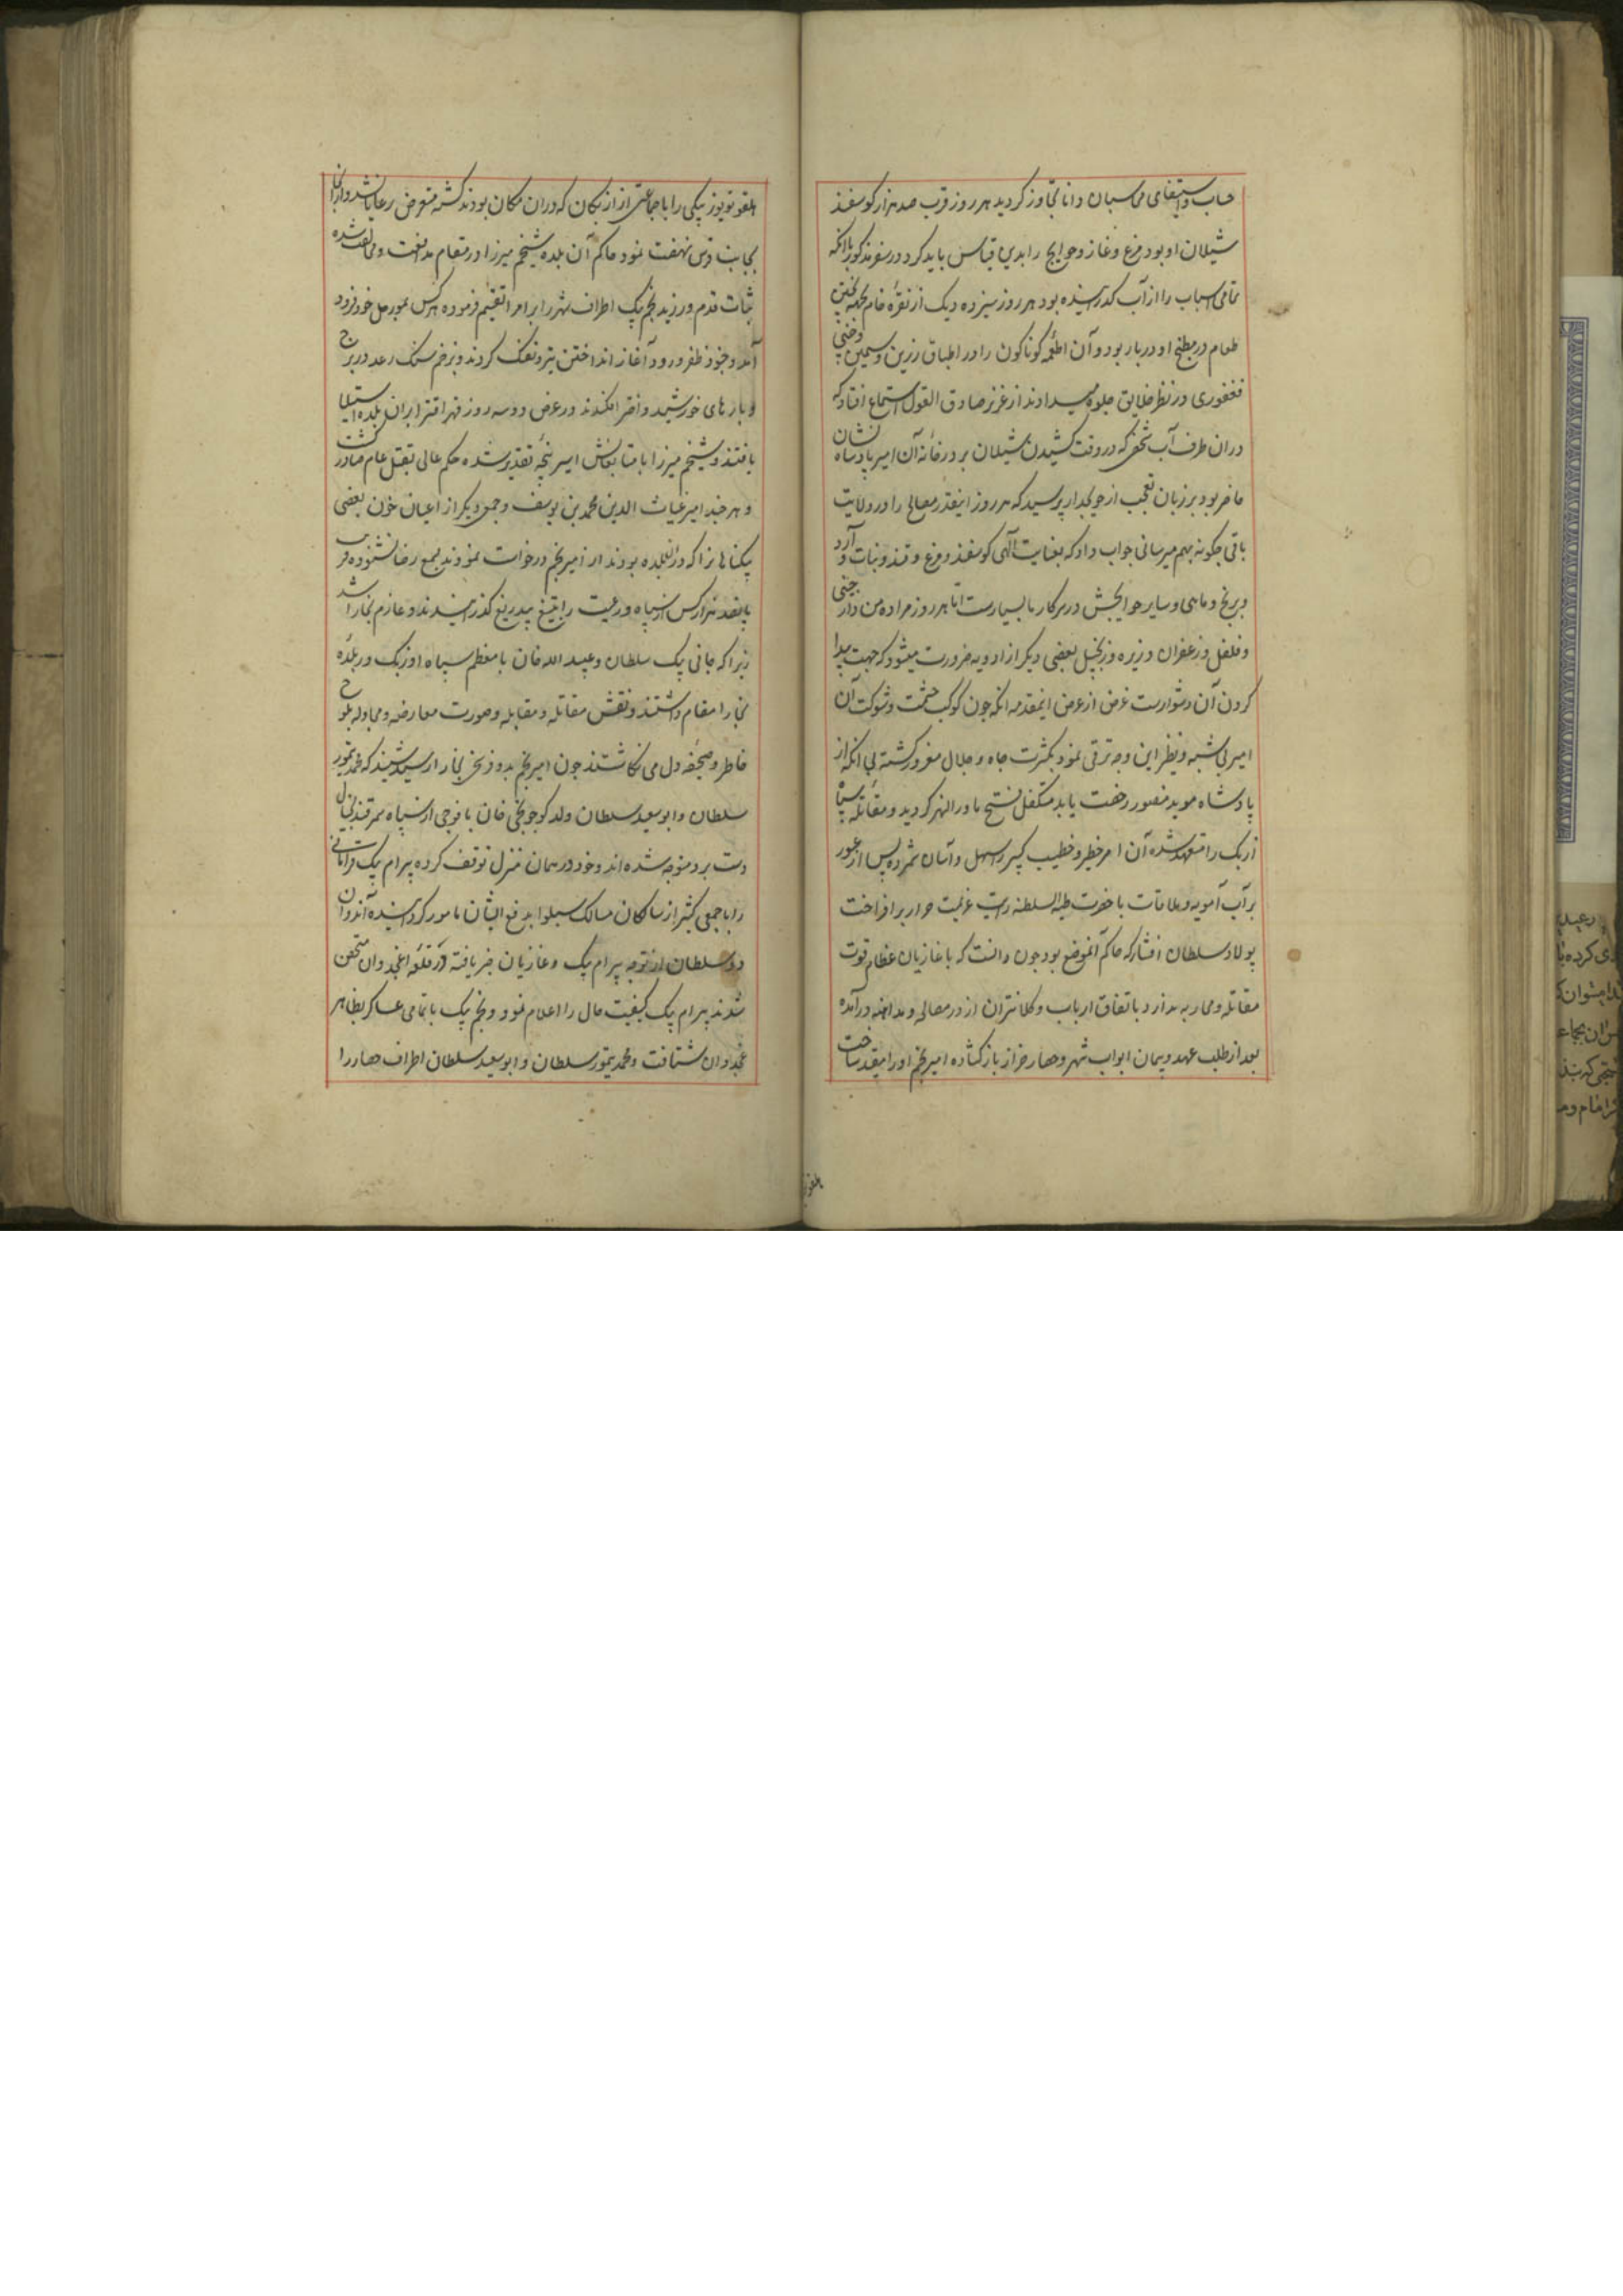 حساب و استیفای محاسبان دانا تجاوز کردید هر روز قرب صد هزار کوسفند
شیلان او بود و مرغ و غاز و حوایج را بدین قیاس باید کرد در سفر مذکور با آنکه
تمامی اسباب را از آب گذرانیده بود هر روز سیزده دیک از نقره خام جهة پختن
طعام در مطبخ او در بار بود و آن اطعمه کوناکون را در اطباق زرین و سیمین و چینی
فغفوری در نظر خلایق جلوه میدادند از عزیز صادق القول استماع افتاد که
دران طرف آب شخصی که در وقت کشیدن شیلان بر در خانه آن امیر پادشاه نشان
حاضر بود بر زبان تعجب از حویجدار پرسید که هر روز اینقدر مصالح را در ولایت
باقی چکونه بهم میرسانی جواب داد که بعنایت الهی کوسفند و مرغ و قند و نبات و آرد
و برنج و ماهی و سایر حوایجش در سرکار ما بسیارست اما هر روز مرا ده من دارچینی
و فلفل و زعفران و زیره و زنجبیل بعضی دیکر از ادویه ضرورت میشود که جهت پیدا
کردن آن دشوارست غرض از عرض اینمقدمه آنکه چون کوکب حشمت و شوکت آن
امیر بی شبه و نظیر این وجه ترقی نمود بکثرت جاه و جلال مغرور کشته بی آنکه از
پادشاه موید منصور رخصت یابد متکفل فتح ماورالنهر کردید و مقاتله سپاه
ازبک را متعهد شده آن امر خطیر و خطیب کبیر را سهل و آسان شمرده پس از عبور
بر آب آمویه و ملاقات با حضرت ظهیر السلطنه رایت عزیمت حرار برافراخت
پولاد سلطان افشار که حاکم آنموضع بود چون دانست که با غازیان عظام قوت
مقاتله و محاربه ندارد باتفاق ارباب و کلانتران از در مصالحه و مداهنه درآمده
بعد از طلب عهد و پیمان ابواب شهر و حصار خزار باز کشاده امیر نجم او را مقید ساخت
بلغوتویوز بیکی را با جماعتی از ازبکان که دران مکان بودند کشته متعرض رعایا نشد و از آنجا
بجانب قرشی نهضت نمود حاکم آن بلده شیخم میرزا در مقام مدافعت و مخالفت شده
ثبات قدم ورزید نجم بیک اطراف شهر را بر امرا تقسیم فرموده هرکس بمورچل خود فرود
آمد و جنود ظفر ورود آغاز انداختن تیر و تفنک کردند و بزخم سنک رعد در برج
و بارهای خورشید و اختر افکندند در عرض دو سه روز قهرا قسرا بران بلده استیلا
یافتند و شیخم میرزا با متابعانش اسیر پنجه تقدیر شده حکم عالی بقتل عام صادر کشت
و هر چند امیر غیاث الدین محمد بن یوسف و جمعی دیکر از اعیان خون بعضی
بیکناهانرا که در آنبلده بودند از امیر نجم درخواست نمودند بسمع رضا نشنوده قریب
پانصد هزار کس از سپاه و رعیت را بتیغ بیدریغ گذرانیدند و عازم بخارا شد
زیرا که جانی بیک سلطان و عبید الله خان با معظم سپاه اوزبک در بلده
بخارا مقام داشتند و نقش مقاتله و مقابله و صورت معارضه و مجادله بلوح
خاطر و صحیفه دل می نکاشتند چون امیر نجم بدو فرسخی بخارا رسید شنید که محمد تیمور
سلطان و ابوسعید سلطان ولد کوجونجی خان با فوجی از سپاه سمرقند بخیال
دست برد متوجه شده اند و خود در همان منزل توقف کرده بیرام بیک قرامانی
را با جمعی کثیر از سالکان مسالک سیلوا بدفع ایشان مامور کردانیده آندوان
دو سلطان از توجه بیرام بیک و غازیان خبر یافته در قلعه اغجدوان متحصن
شدند بیرام بیک کیفیت حال را اعلام نمود و نجم بیک با تمامی عساکر بظاهر
غجدوان شتافت و محمد تیمور سلطان و ابوسعید سلطان اطراف حصار را